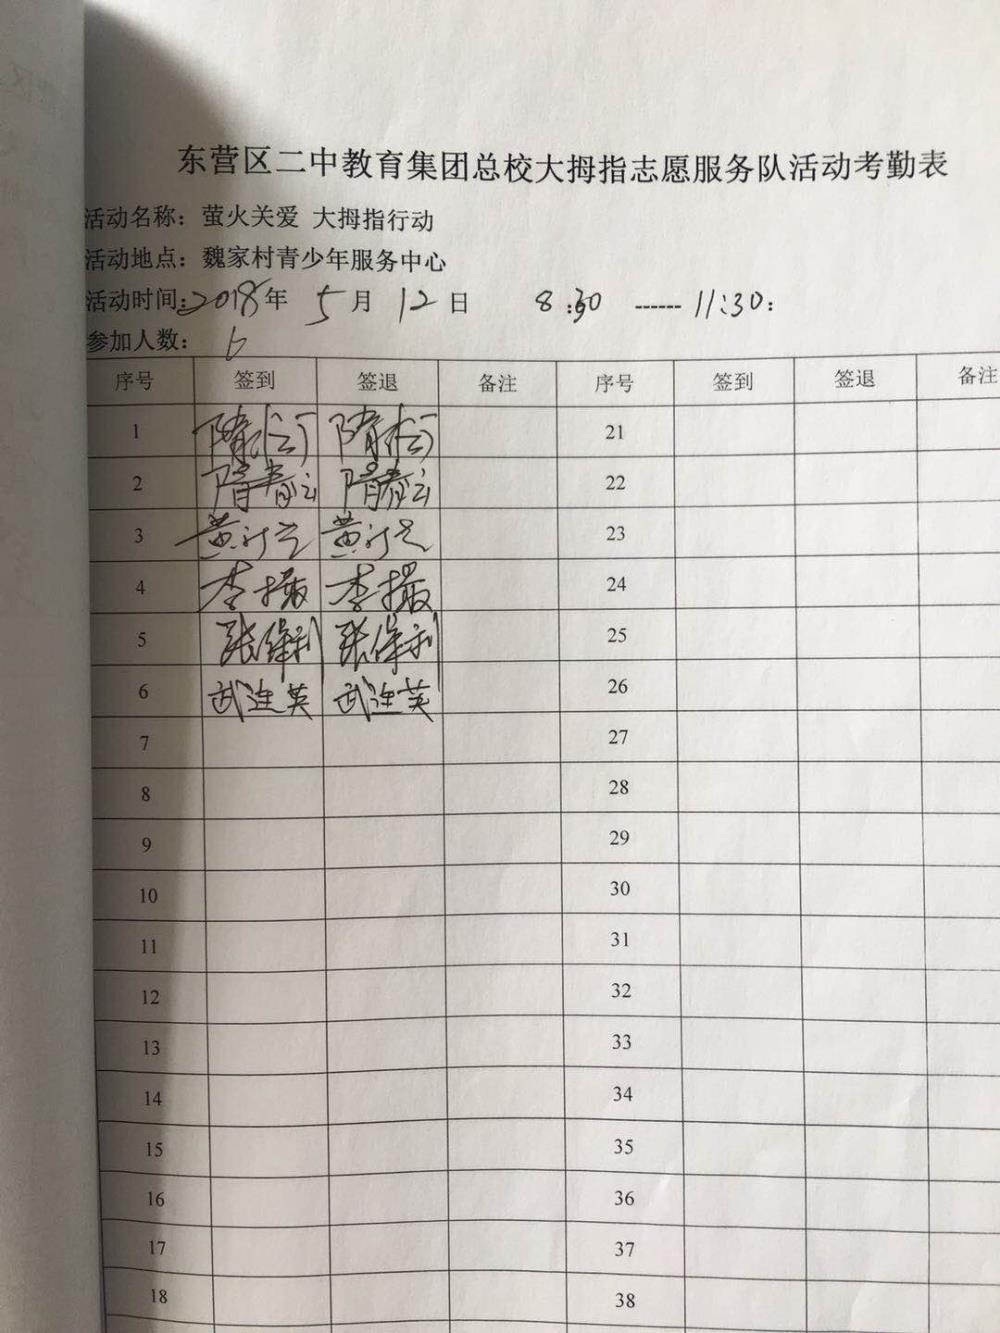 东营区二中教育集团总校大拇指志愿服务队活动考勤表
活动名称：萤火关爱 大拇指行动
活动地点：魏家村青少年服务中心
活动时间：2018年 5月 12日 8:30 ------ 11:30：
参加人数： 6
序号 签到 签退 备注 序号 签到 签退 备注
1 21
2 隋春云 隋春云 22
3 黄 黄 23
4 李撮 李撮 24
5 张保利 张保利 25
6 武连英 武连英 26
7 27
8 28
9 29
10 30
11 31
12 32
13 33
14 34
15 35
16 36
17 37
18 38